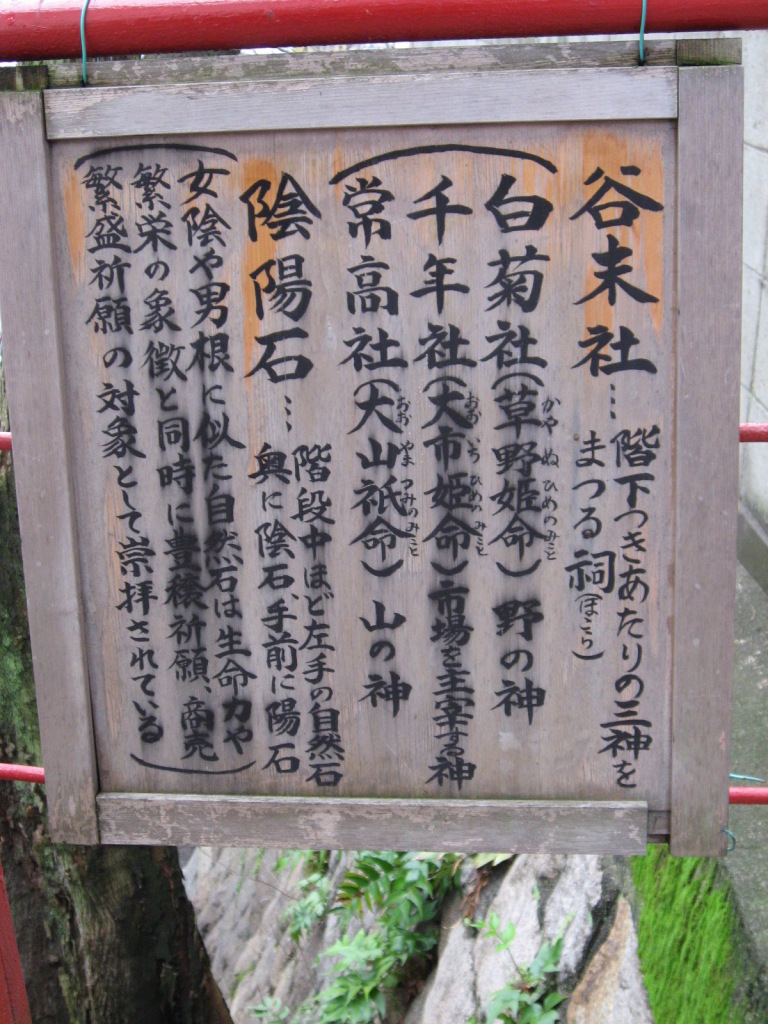 谷末社…
階下つきあたりの三神を
まつる祠(ほこら)
白菊社(草野姫命)野の神
かやぬひめのみこと
千年社(大市姫命)市場を主宰する神
おおいちひめのみこと
常高社(大山祇命)山の神
おおやまつみのみこと
陰陽石…
階段中ほど左手の自然石
奥に陰石、手前に陽石
(女陰や男根に似た自然石は生命力や
繁栄の象徴と同時に豊穣祈願、商売
繁盛祈願の対象として崇拝されている)